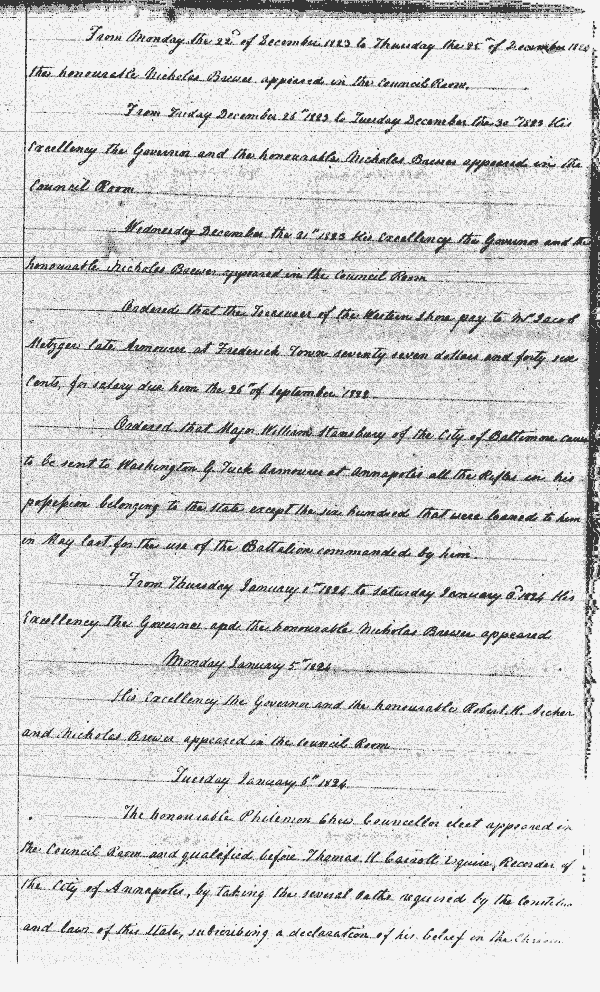 From Monday the 22d of December 1823 to Thursday the 25th of December 1823
the honourable Nicholas Brewer appeared in the Council Room.
From Friday December 26th 1823 to Tuesday December the 30th 1823 His
Excellency the Governor and the honourable Nicholas Brewer appeared in the
Council Room
Wednesday December the 31st 1823 His Excellency the Governor and the
honourable Nicholas Brewer appeared in the Council Room
Ordered that the Treasurer of the Western Shore pay to Mr. Jacob
Metzger late Armourer at Frederick Town seventy seven dollars and forty six
Cents, for salary due him the 26th of September 1822
Ordered that Major William Stansbury of the City of Baltimore cause
to be sent to Washington G. Tuck Armourer at Annapolis all the Rifles in his
possession belonging to the State except the six hundred that were loaned to him
in May last for the use of the Battalion commanded by him
From Thursday January 1st 1824 to Saturday January 3d 1824 His
Excellency the Governor and the honourable Nicholas Brewer appeared
Monday January 5th 1824
His Excellency the Governor and the honourable Robert H. Archer
and Nicholas Brewer appeared in the Council Room
Tuesday January 6th 1824
The honourable Philemon Chew Councellor elect appeared in
the Council Room and qualified before Thomas H Carroll Esquire, Recorder of
the City of Annapolis, by taking the several Oaths required by the
and laws of this State, subscribing a declaration of his belief in the